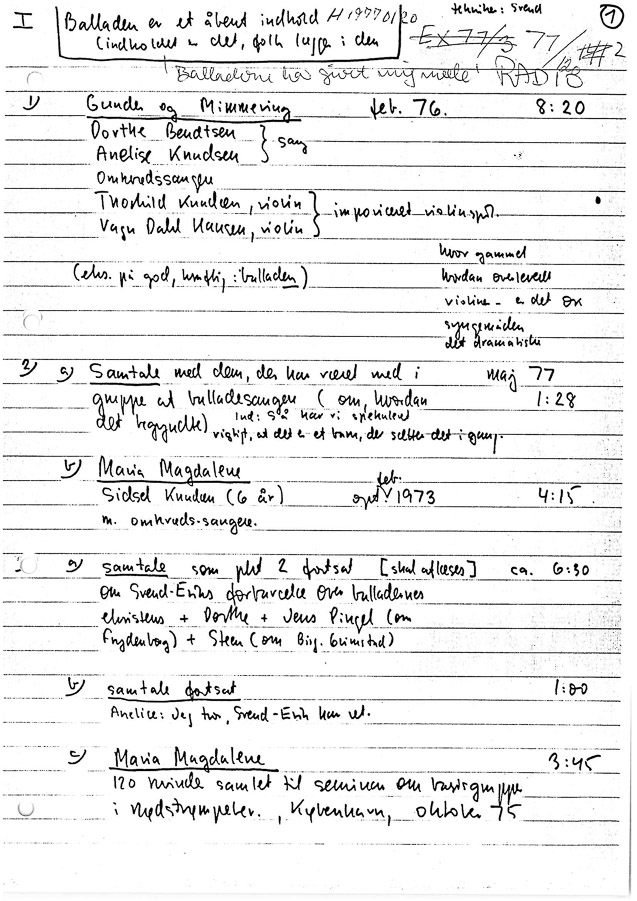 I Balladen er et åbent indhold H 19770120 tekniker: Svend 1
(indholdet er det, folk lægger i den EX 77/3 77/12 2
'Balladerne har givet mig mæle' RADIO
1) Gunder og Mimmering feb. 76. 8:20
Dorthe Bendtsen
Anelise Knudsen } sang
Omkredssangen
Thorhild Knudsen, violin
Vagn Dahl Hansen, violin } improviceret violinspil.
hvor gammel
(eks. på god, kraftig, balladen) hvordan overleveret
violine - er det ok
syngemåden
det dramatiske
2) a) Samtale med dem, der har været med i maj 77
gruppe at balladesangen (om, hvordan 1:28
det begyndte) Ind: Så har vi spekuleret
vigtigt, at det er et barn, der sætter det i gang.
b) Maria Magdalene feb.
Sidsel Knudsen (6 år) opt 1973 4:15
m. omkreds-sangere.
a) samtale som pkt 2 fortsat [skal afløses] ca. 6:30
om Svend-Eriks forbavselse over balladernes
christens + Dorthe + Jens Pingel (om
Frydenborg) + Steen (om Birg. Grimstad)
b) samtale fortsat 1:00
Anelice: Jeg tror, Svend-Erik har ret.
c) Maria Magdalene 3:45
120 kvinder samlet til seminar om basisgruppe
i rødstrømpebev., København, oktober 75